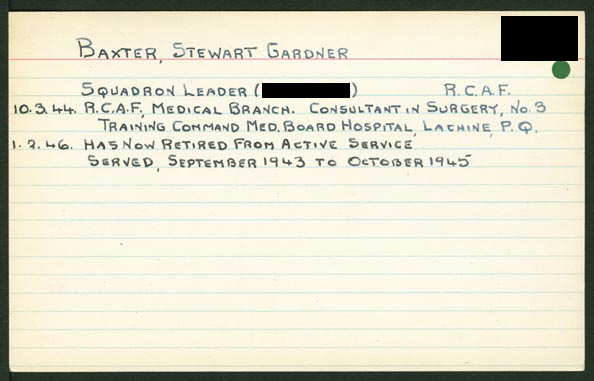 BAXTER, STEWART GARDNER
SQUADRON LEADER ( ) R.C.A.F.
10.3.44. R.C.A.F., MEDICAL BRANCH. CONSULTANT IN SURGERY, NO. 3
TRAINING COMMAND MED. BOARD HOSPITAL, LACHINE, P.Q.
1.2.46. HAS NOW RETIRED FROM ACTIVE SERVICE
SERVED, SEPTEMBER 1943 TO OCTOBER 1945